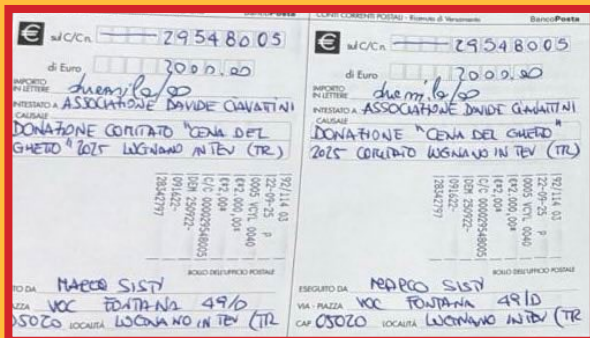 BancoPosta
€ sul C/C n. 29548005
di Euro 2000,00
IMPORTO IN LETTERE duemila/00
INTESTATO A ASSOCIAZIONE DAVIDE CIAVATTINI
CAUSALE
DONAZIONE COMITATO "CENA DEL
GHETTO" 2025 LUGNANO IN TEV (TR)
92/114 03
22-09-25 P
0005 VCYL 0040
€*2.000,00*
€*2,00*
C/C 000029548005
DEM 250922-
091622-
28342797
BOLLO DELL'UFFICIO POSTALE
TO DA MARCO SISTI
ZZA VOC FONTANA 49/D
05020 LOCALITÀ LUGNANO IN TEV (TR
CONTI CORRENTI POSTALI - Ricevuta di Versamento BancoPosta
€ sul C/C n. 29548005
di Euro 2000,00
IMPORTO IN LETTERE duemila/00
INTESTATO A ASSOCIAZIONE DAVIDE CIAVATTINI
CAUSALE
DONAZIONE "CENA DEL GHETTO"
2025 COMITATO LUGNANO IN TEV (TR)
92/114 03
22-09-25 P
0005 VCYL 0040
€*2.000,00*
€*2,00*
C/C 000029548005
DEM 250922-
091622-
28342797
BOLLO DELL'UFFICIO POSTALE
ESEGUITO DA MARCO SISTI
VIA - PIAZZA VOC FONTANA 49/D
CAP 05020 LOCALITÀ LUGNANO IN TEV (TR